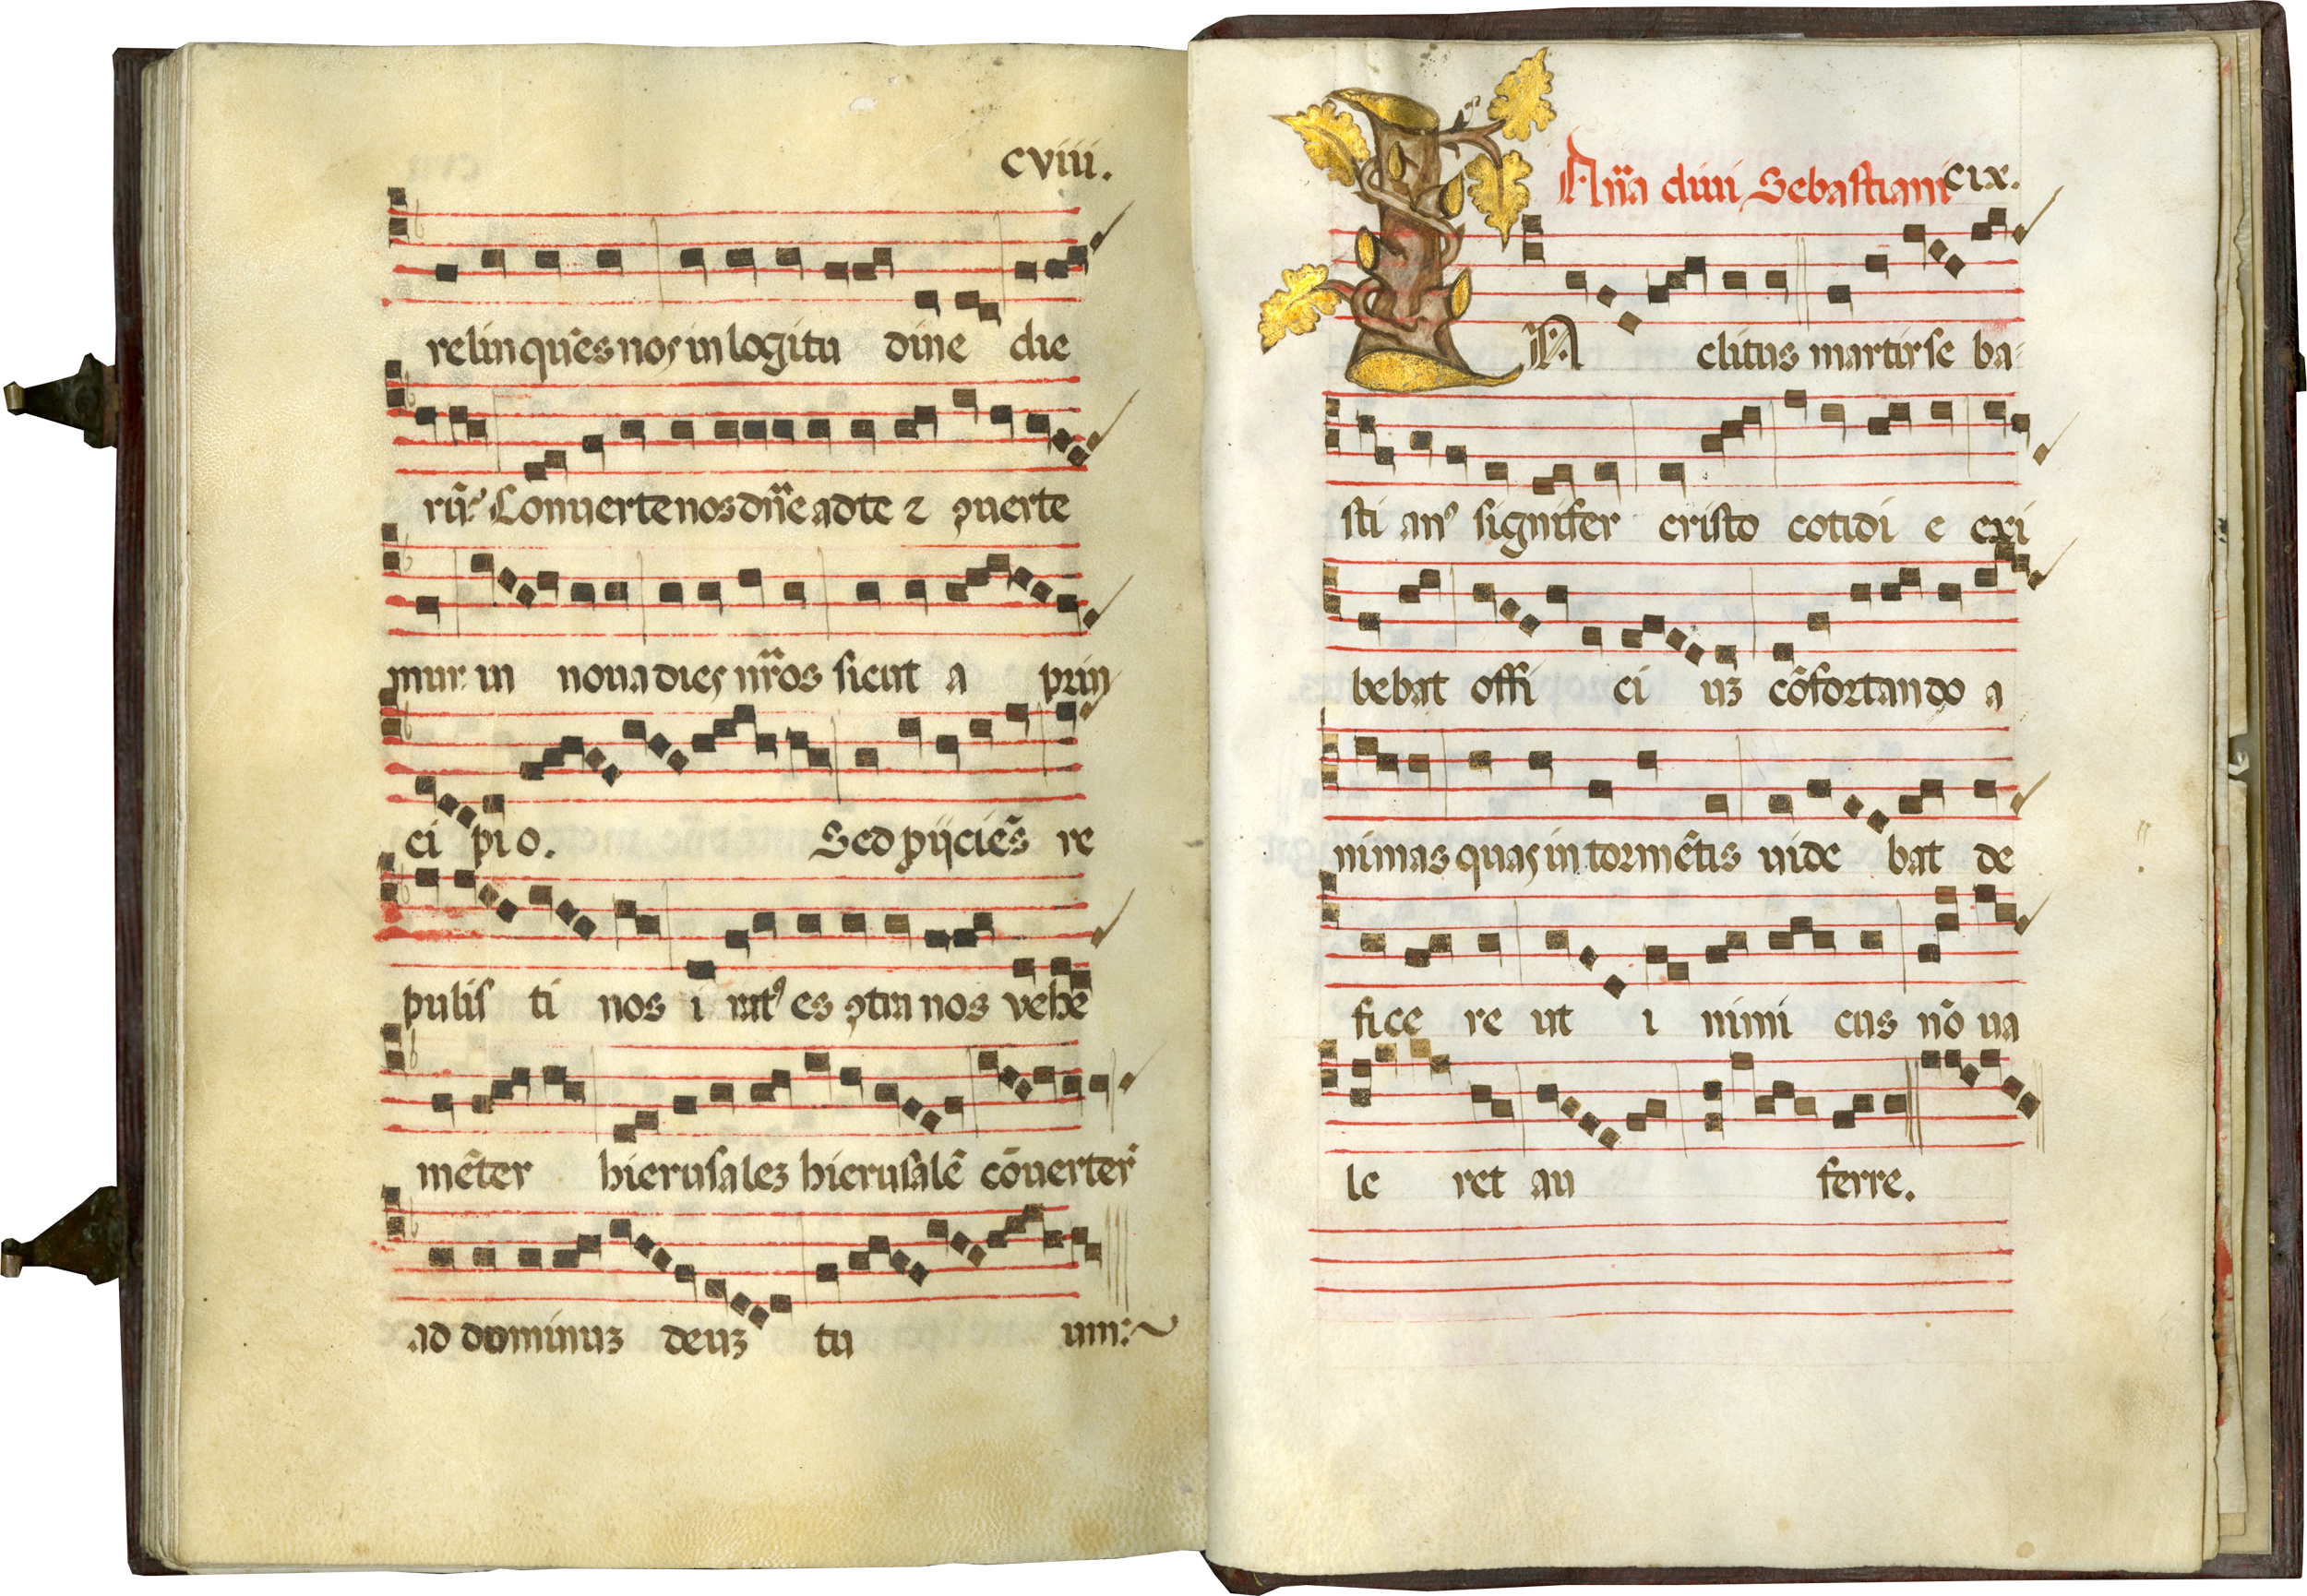 cviii.
relinquēs nos in lōgitu dine die
rū. Conuerte nos dn̄e ad te ⁊ ꝯuerte
mur in noua dies nr̄os sicut a prin
ci pio. Sed p̄ijciēs re
pulis ti nos i ratꝰ es ꝯtra nos vehe
mēter hierusalez hierusalē cōuerter̄
ad dominuz deuz tu um:~
An̄a diui Sebastiani cix.
IN clitus martir se ba-
sti anꝰ signifer cristo cotidi e exi
bebat offi ci uz cōfortando a
nimas quas in tormētis uide bat de
fice re ut i nimi cus nō ua
le ret au ferre.